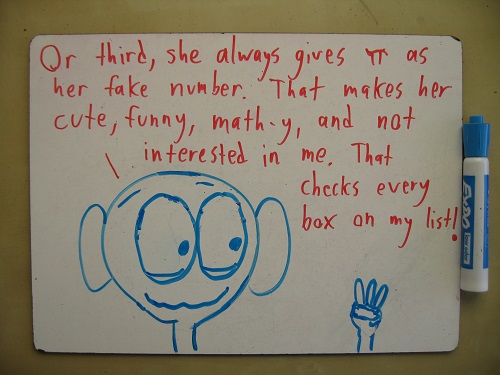 Or third, she always gives π as
her fake number. That makes her
cute, funny, math-y, and not
interested in me. That
checks every
box on my list!
EXPO